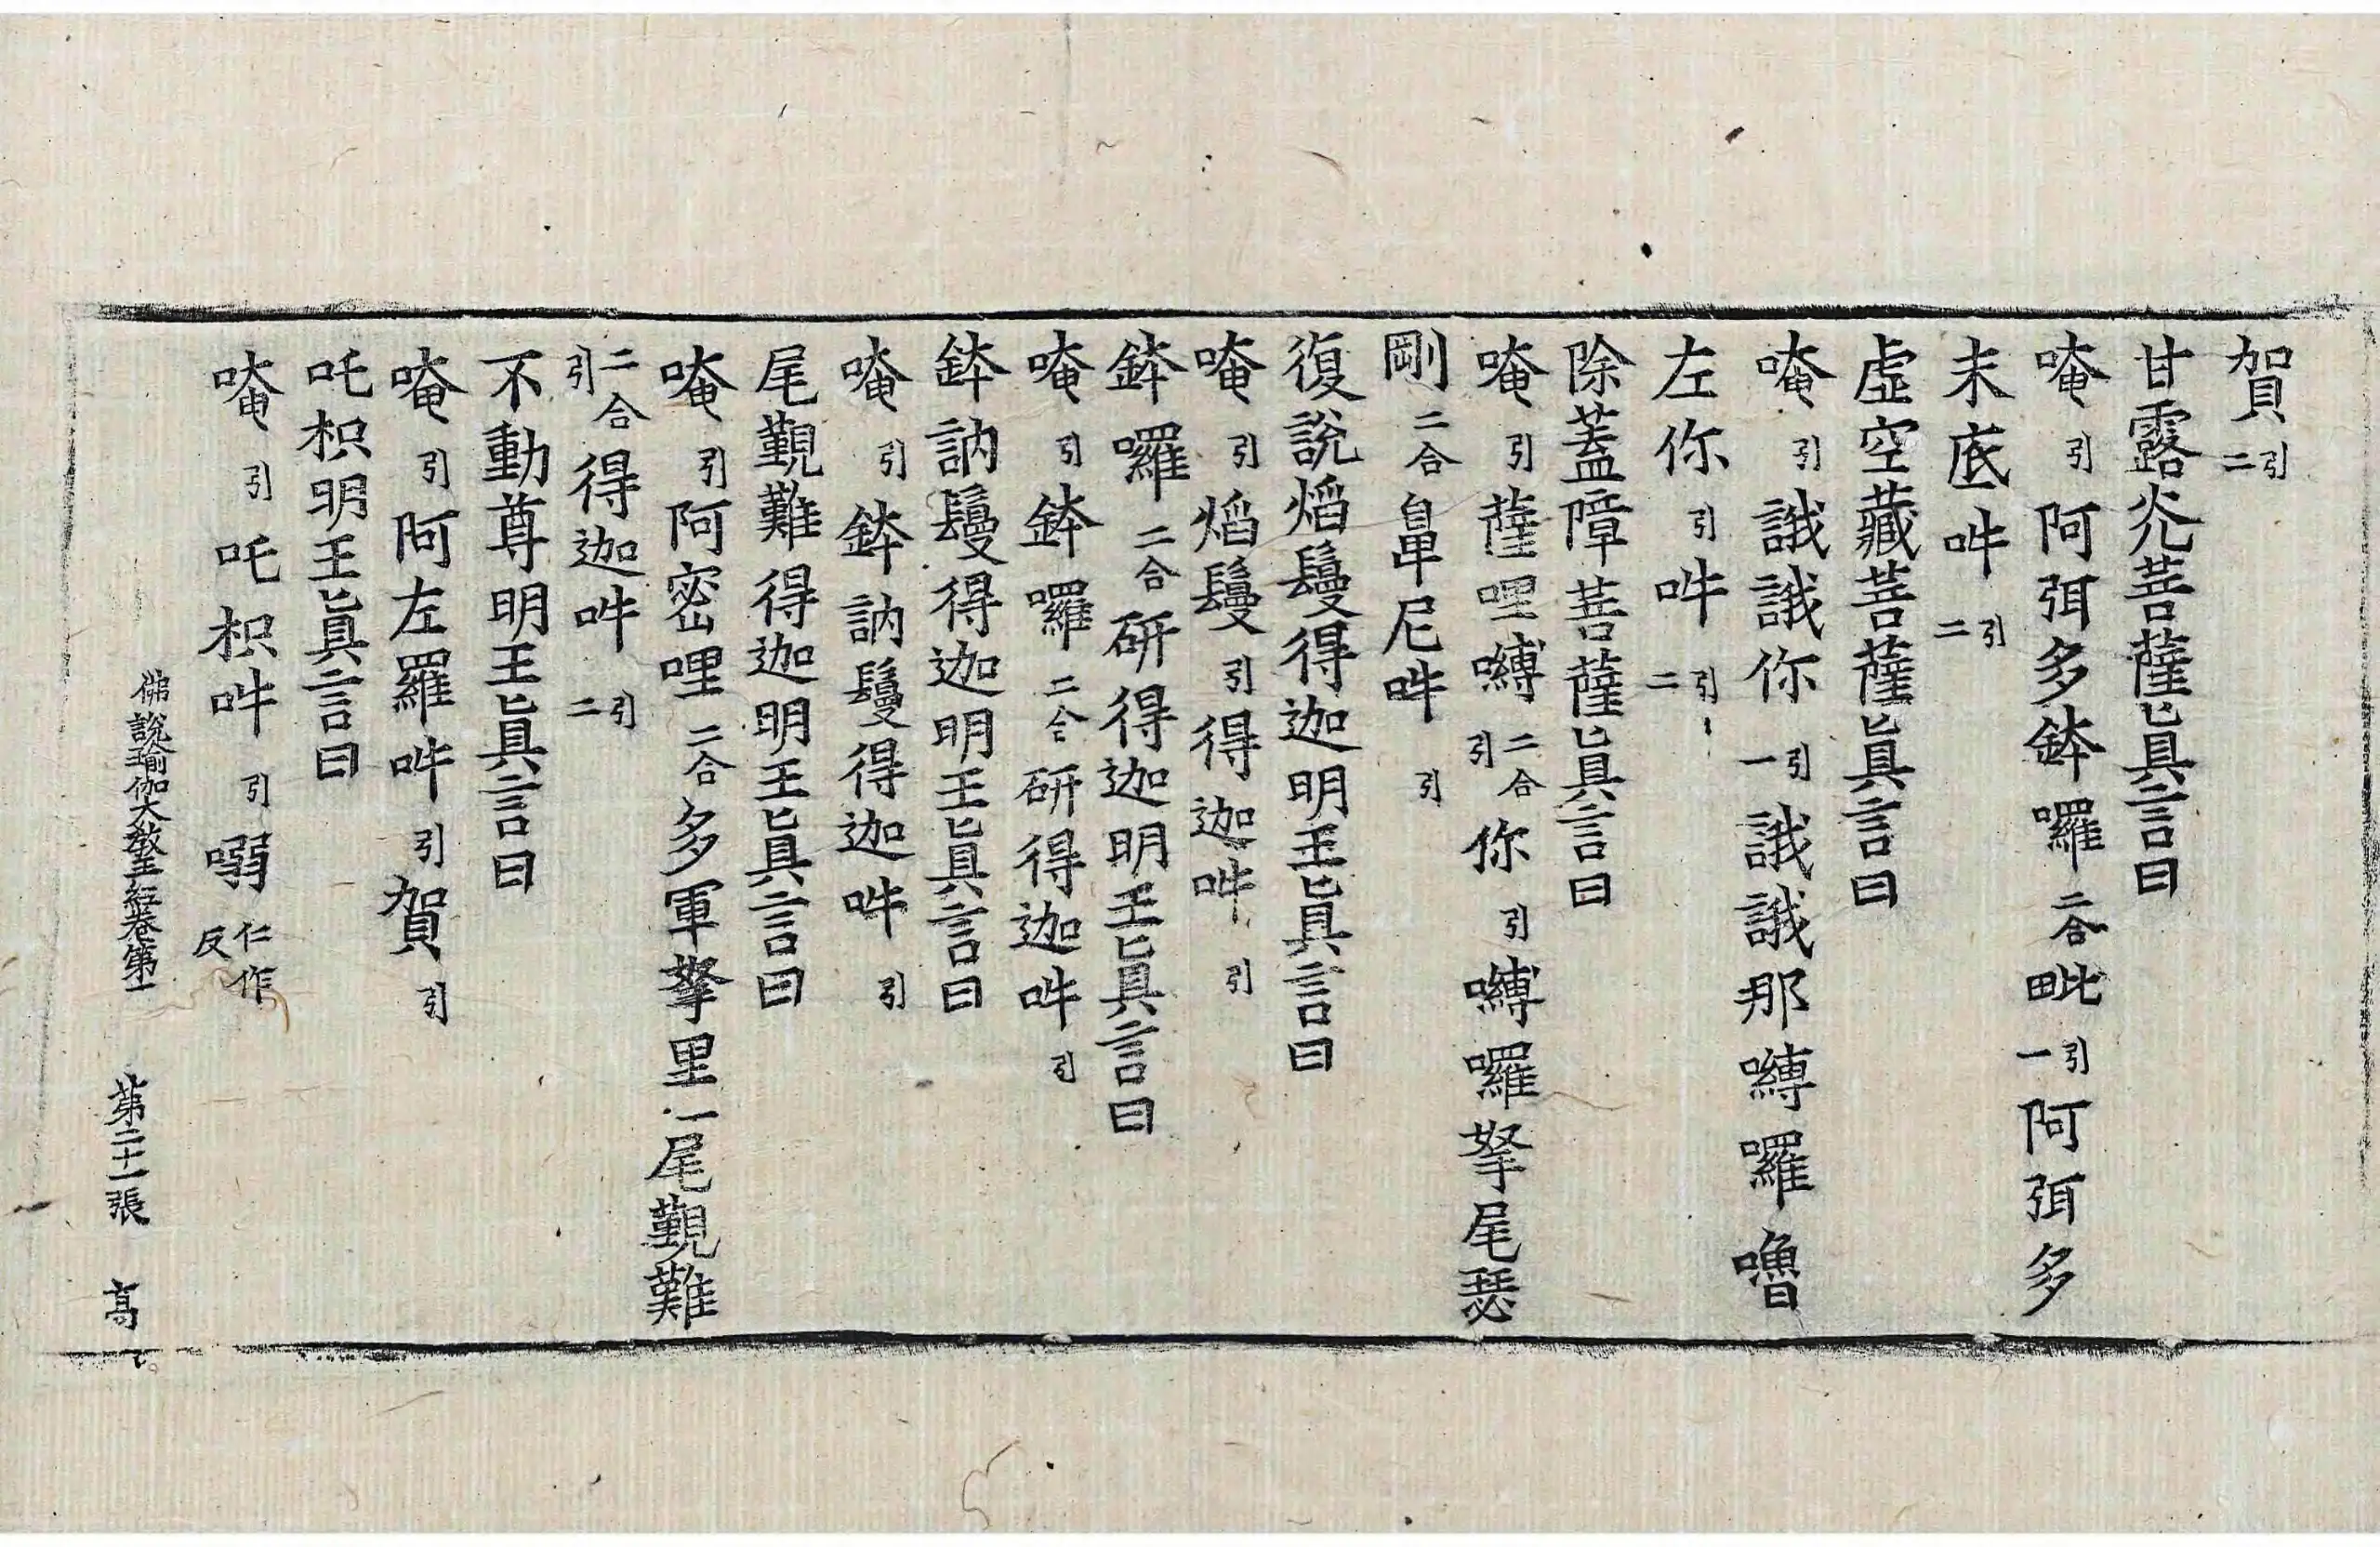 賀引二
甘露光菩薩眞言曰
唵引阿弭多鉢囉二合毗引一阿弭多
末底吽引二
虛空藏菩薩眞言曰
唵引誐誐你引一誐誐那嚩囉嚕
左你引吽引二
除蓋障菩薩眞言曰
唵引薩哩嚩二合引你引嚩囉拏尾瑟
剛二合畢尼吽引
復說焰鬘得迦明王眞言曰
唵引焰鬘引得迦吽引
鉢囉二合研得迦明王眞言曰
唵引鉢囉二合研得迦吽引
鉢訥鬘得迦明王眞言曰
唵引鉢訥鬘得迦吽引
尾覲難得迦明王眞言曰
唵引阿密哩二合多軍拏里一尾覲難
二合引得迦吽引二
不動尊明王眞言曰
唵引阿左羅吽引賀引
吒枳明王眞言曰
唵引吒枳吽引嗍仁作反
佛說瑜伽大教王經卷第一 第二十一張 高